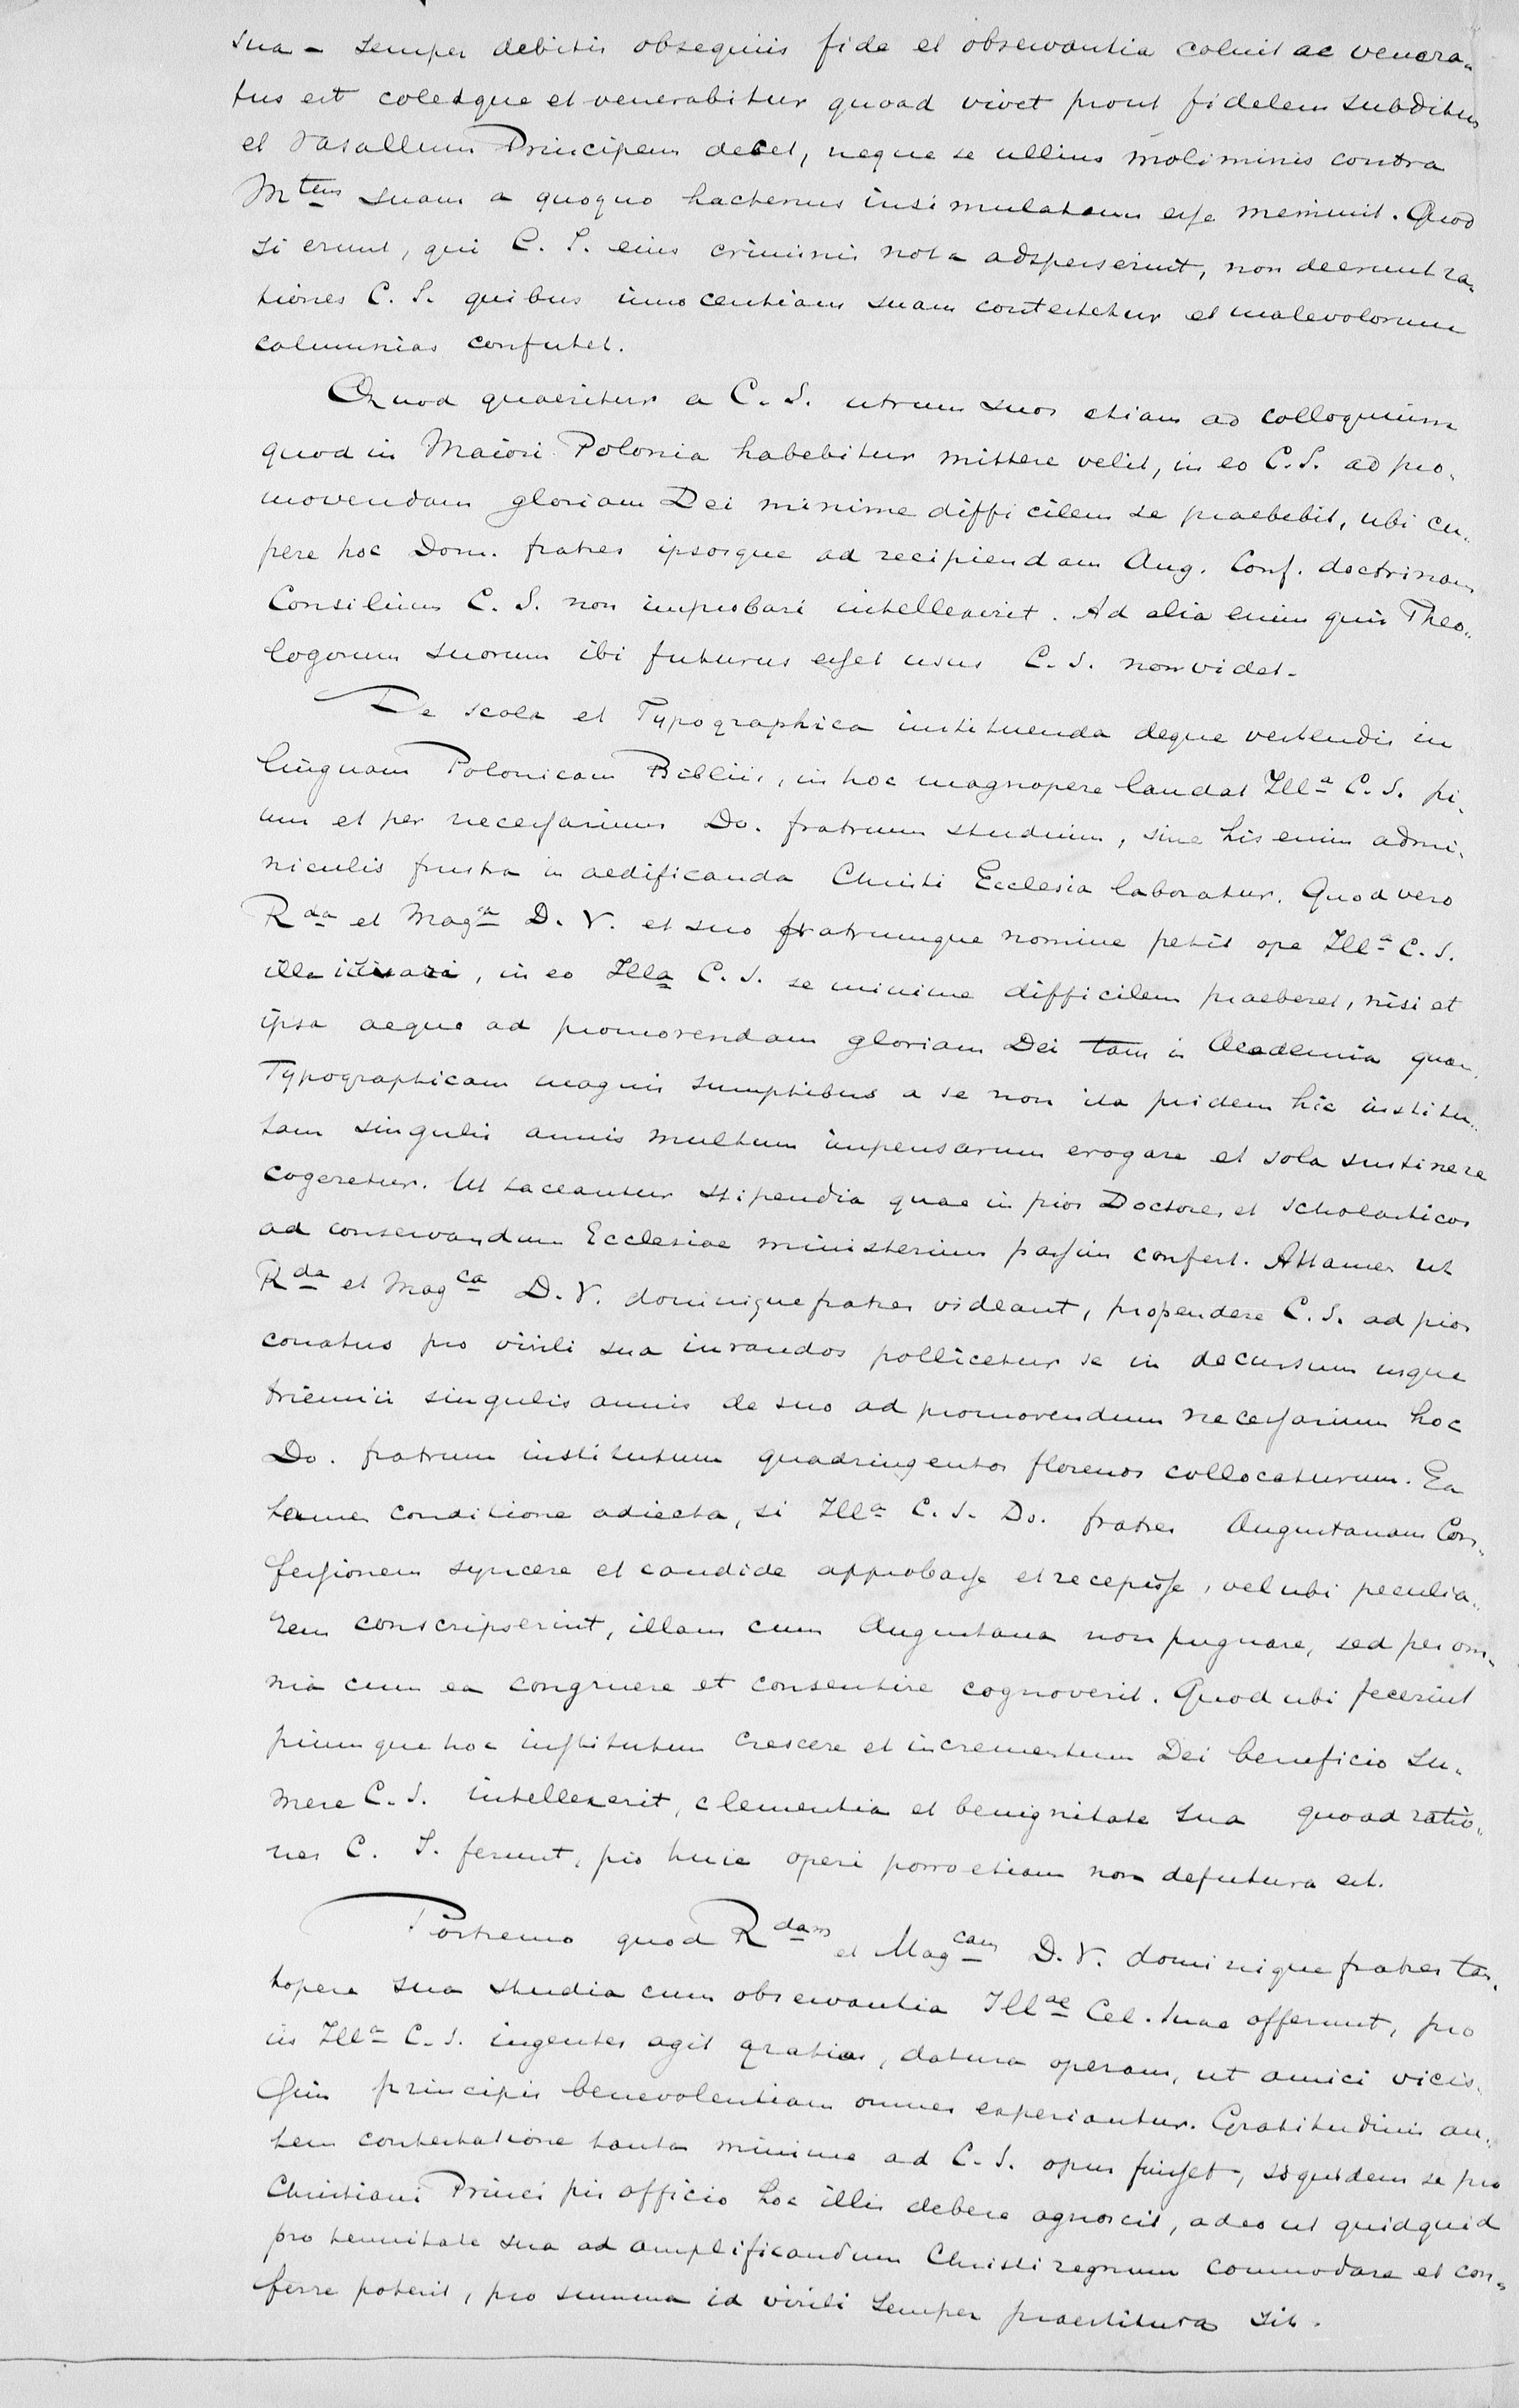 sua - semper debitis obsequiis fide et observantia coluit ac venera-
tus est coletque et venerabitur quoad vivet prout fidelem subditum
et Vasallum Principem decet, neque se ullius moliminis contra
Mtem suam a quoquo hactenus insimulatam esse meminit. Quod
si erunt, qui C. S. eius criminis nota adsperserint, non deerunt ra-
tiones C. S. quibus innocentiam suam contestetur et malevolorum
calumnias confutet.
Quod quaeritur a C. S. utrum suos etiam ad colloquium
quod in Maiori Polonia habebitur mittere velit, in eo C. S. ad pro-
movendam gloriam Dei minime difficilem se praebebit, ubi cu-
pere hoc Dom. fratres ipsosque ad recipiendam Aug. Conf. doctrinam
Consilium C. S. non improbari intellexerit. Ad alia enim quis Theo-
logorum suorum ibi futurus esset usus C. S. non videt.
De scola et Typographica instituenda deque vertendis in
linguam Polonicam Bibliis, in hoc magnopere laudat Illa C. S. pi-
um et per necessarium Do. fratrum studium, sine his enim admi-
niculis frustra in aedificanda Christi Ecclesia laboratur. Quod vero
Rda et Magca D. V. et suo fratrumque nomine petit ope Illa C. S.
illa , in eo Illa C. S. se minime difficilem praeberet, nisi et
ipsa aeque ad promovendam gloriam Dei tam in Academia quam
Typographicam magnis sumptibus a se non ita pridem hic institu-
tam singulis annis multum impensarum erogare et sola sustinere
cogeretur. Ut taceantur stipendia quae in pios Doctores et scholasticos
ad conservandum Ecclesiae ministerium passim confert. Attamen ut
Rda et Magca D. V. dominique fratres videant, propendere C. S. ad pios
conatus pro virili sua iuvandos pollicetur se in decursum usque
triennii singulis annis de suo ad promovendum necessarium hoc
Do. fratrum institutum quadringentos florenos collocaturum. Ea
tamen conditione adiecta, si Illa C. S. Do. fratres Augustanam Con-
fessionem syncere et candide approbasse et recepisse, vel ubi peculia-
rem conscripserint, illam cum Augustana non pugnare, sed per om-
nia cum ea congruere et consentire cognoverit. Quod ubi fecerint
piumque hoc institutum crescere et incrementum Dei beneficio su-
mere C. S. intellexerit, clementia et benignitate sua quoad ratio-
nes C. S. ferunt, pio huic operi porro etiam non defutura est.
Postremo quod Rdam et Magcam D. V. dominique fratres tan-
topere sua studia cum observantia Illae Cel. suae offerunt, pro
iis Illa C. S. ingentes agit gratias, datura operam, ut amici vicis-
sim principis benevolentiam omnes experiantur. Gratitudinis au-
tem contestatione tanta minime ad C. S. opus fuisset, siquidem se pro
Christiani Principis officio hoc illis debere agnoscit, adeo ut quidquid
pro tenuitate sua ad amplificandum Christi regnum commodare et con-
ferre poterit, pro summa id virili semper praestitura sit.